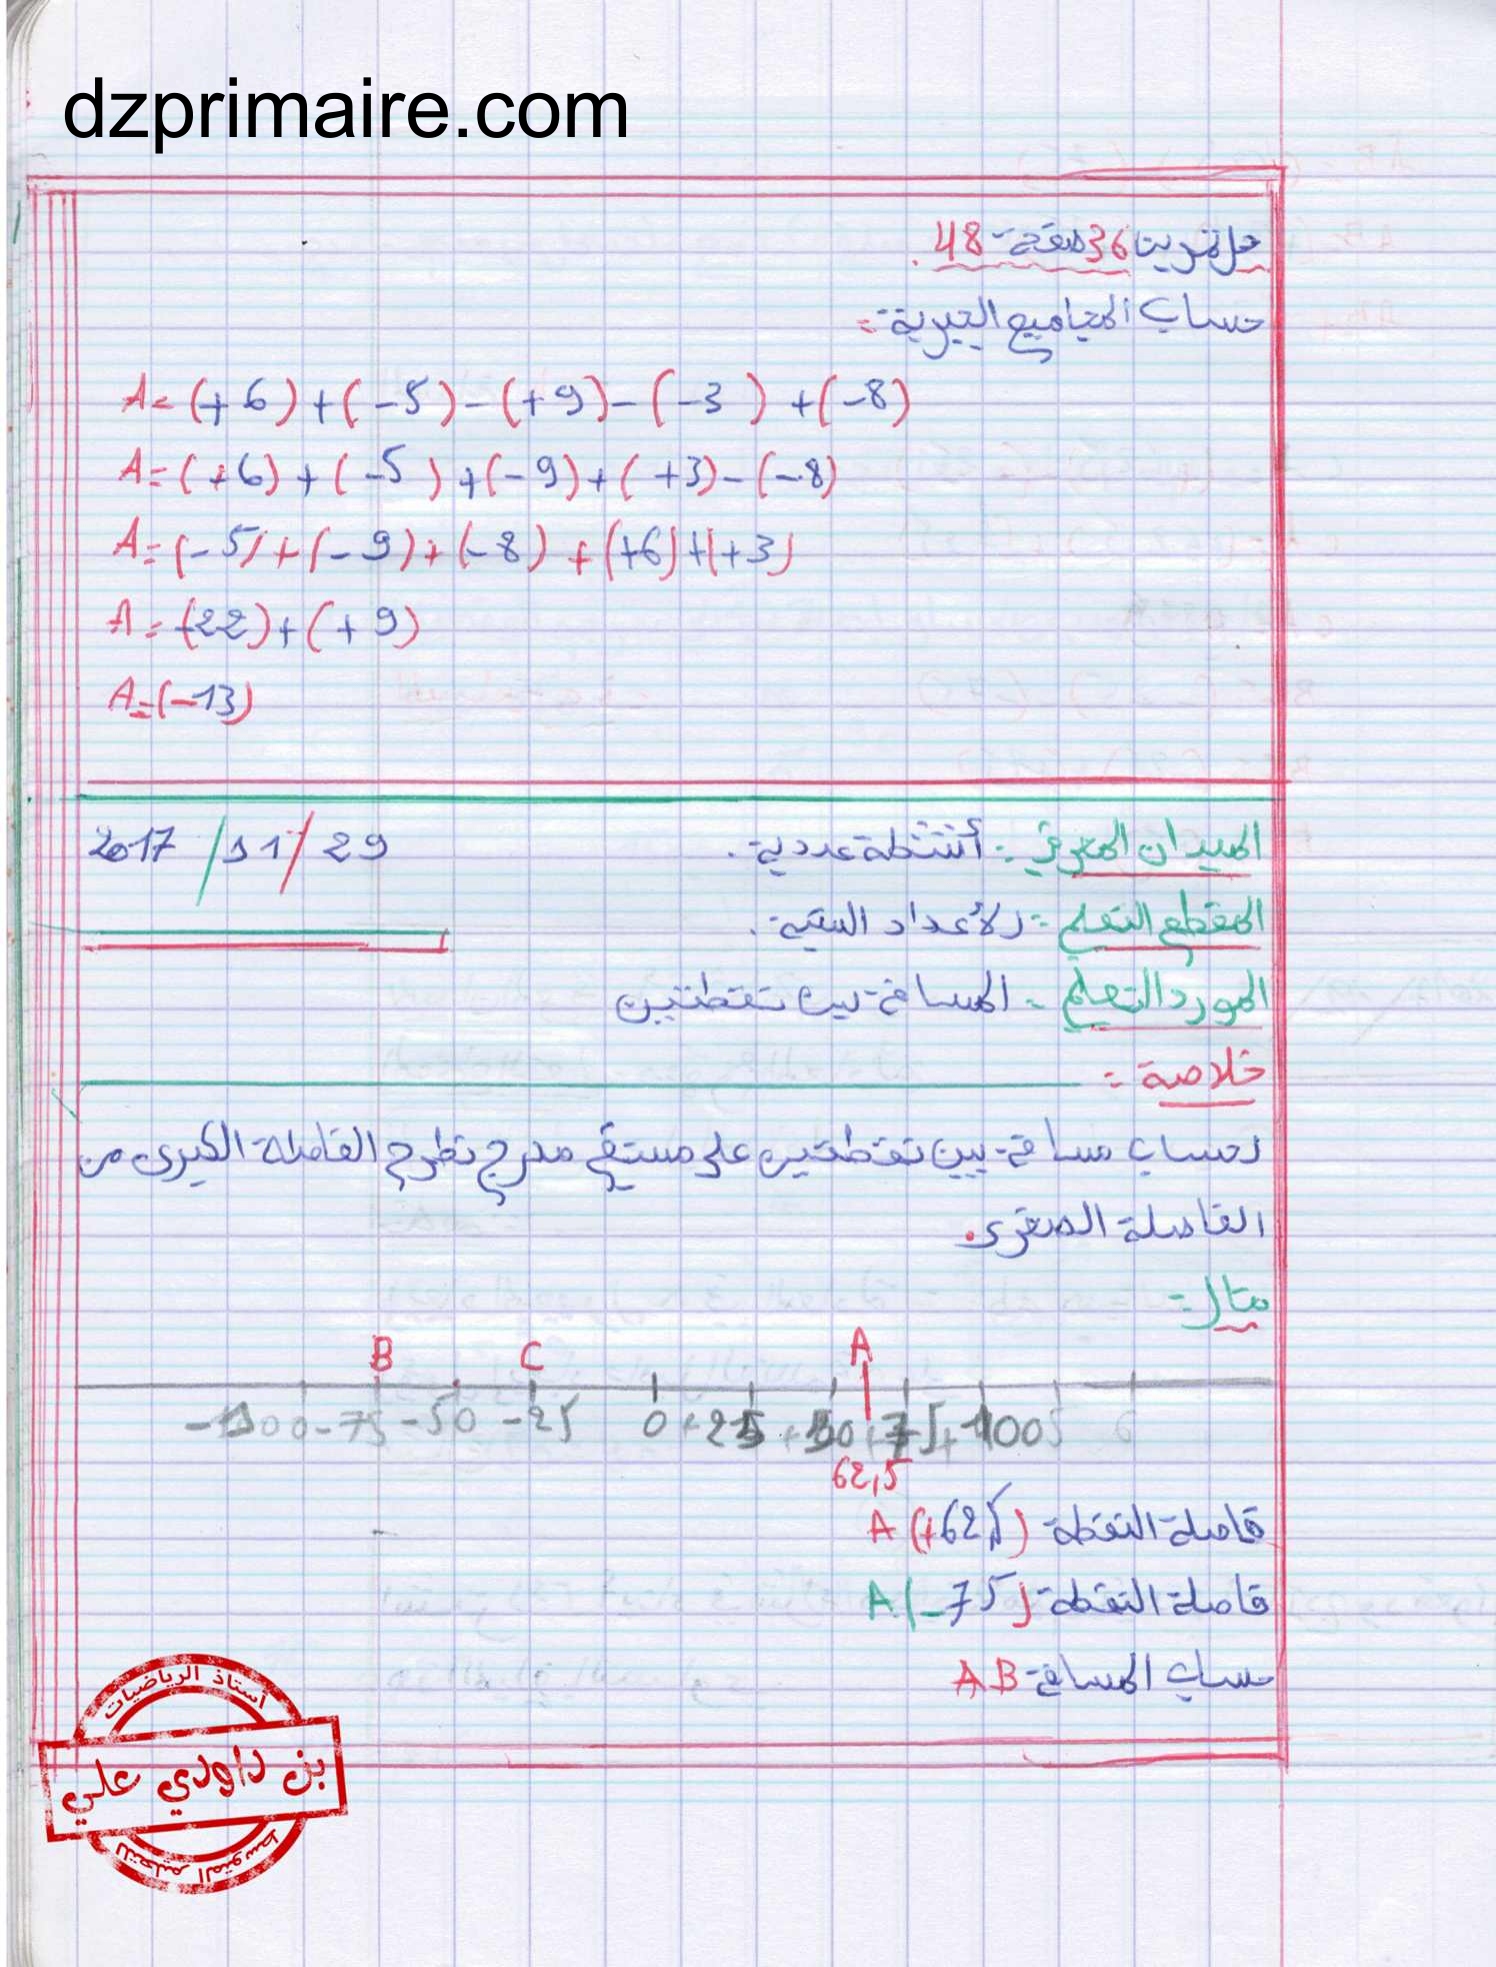 dzprimaire.com
حل تمرين 36 صفحة 48.
حساب المجاميع الجبرية:
A = (+6) + (-5) - (+9) - (-3) + (-8)
A = (+6) + (-5) + (-9) + (+3) - (-8)
A = (-5) + (-9) + (-8) + (+6) + (+3)
A = (-22) + (+9)
A = (-13)
الميدان المعرفي : أنشطة عددية. 29/11/2017
المقطع التعلمي : الأعداد النسبية.
المورد التعلمي : المسافة بين نقطتين
خلاصة :
لحساب مسافة بين نقطتين على مستقيم مدرج نطرح الفاصلة الكبرى من
الفاصلة الصغرى.
مثال:
B C A
-100 -75 -50 -25 0 +25 +50 +75 +100 5 6
62,5
فاصلة النقطة A (+62,5)
فاصلة النقطة A (-75)
حساب المسافة AB
أستاذ الرياضيات
بن داودي علي
للتعليم المتوسط